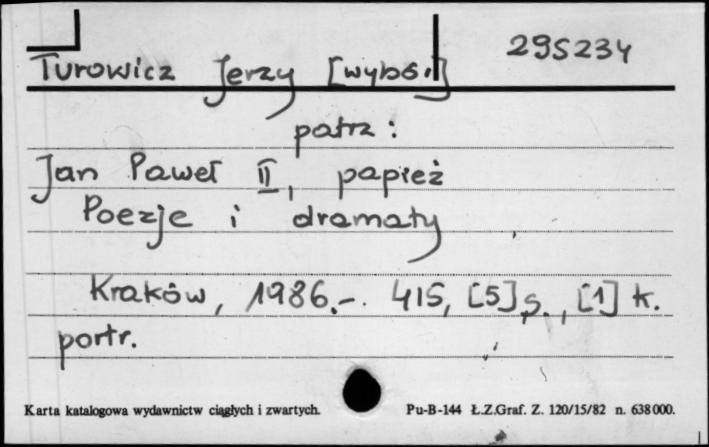 295234
Turowicz Jerzy [wybór]
patrz:
Jan Paweł II, papież
Poezje i dramaty
Kraków, 1986.-. 415, [5] s., [1] k.
portr.
Karta katalogowa wydawnictw ciągłych i zwartych. Pu-B-144 Ł.Z.Graf. Z. 120/15/82 n. 638000.